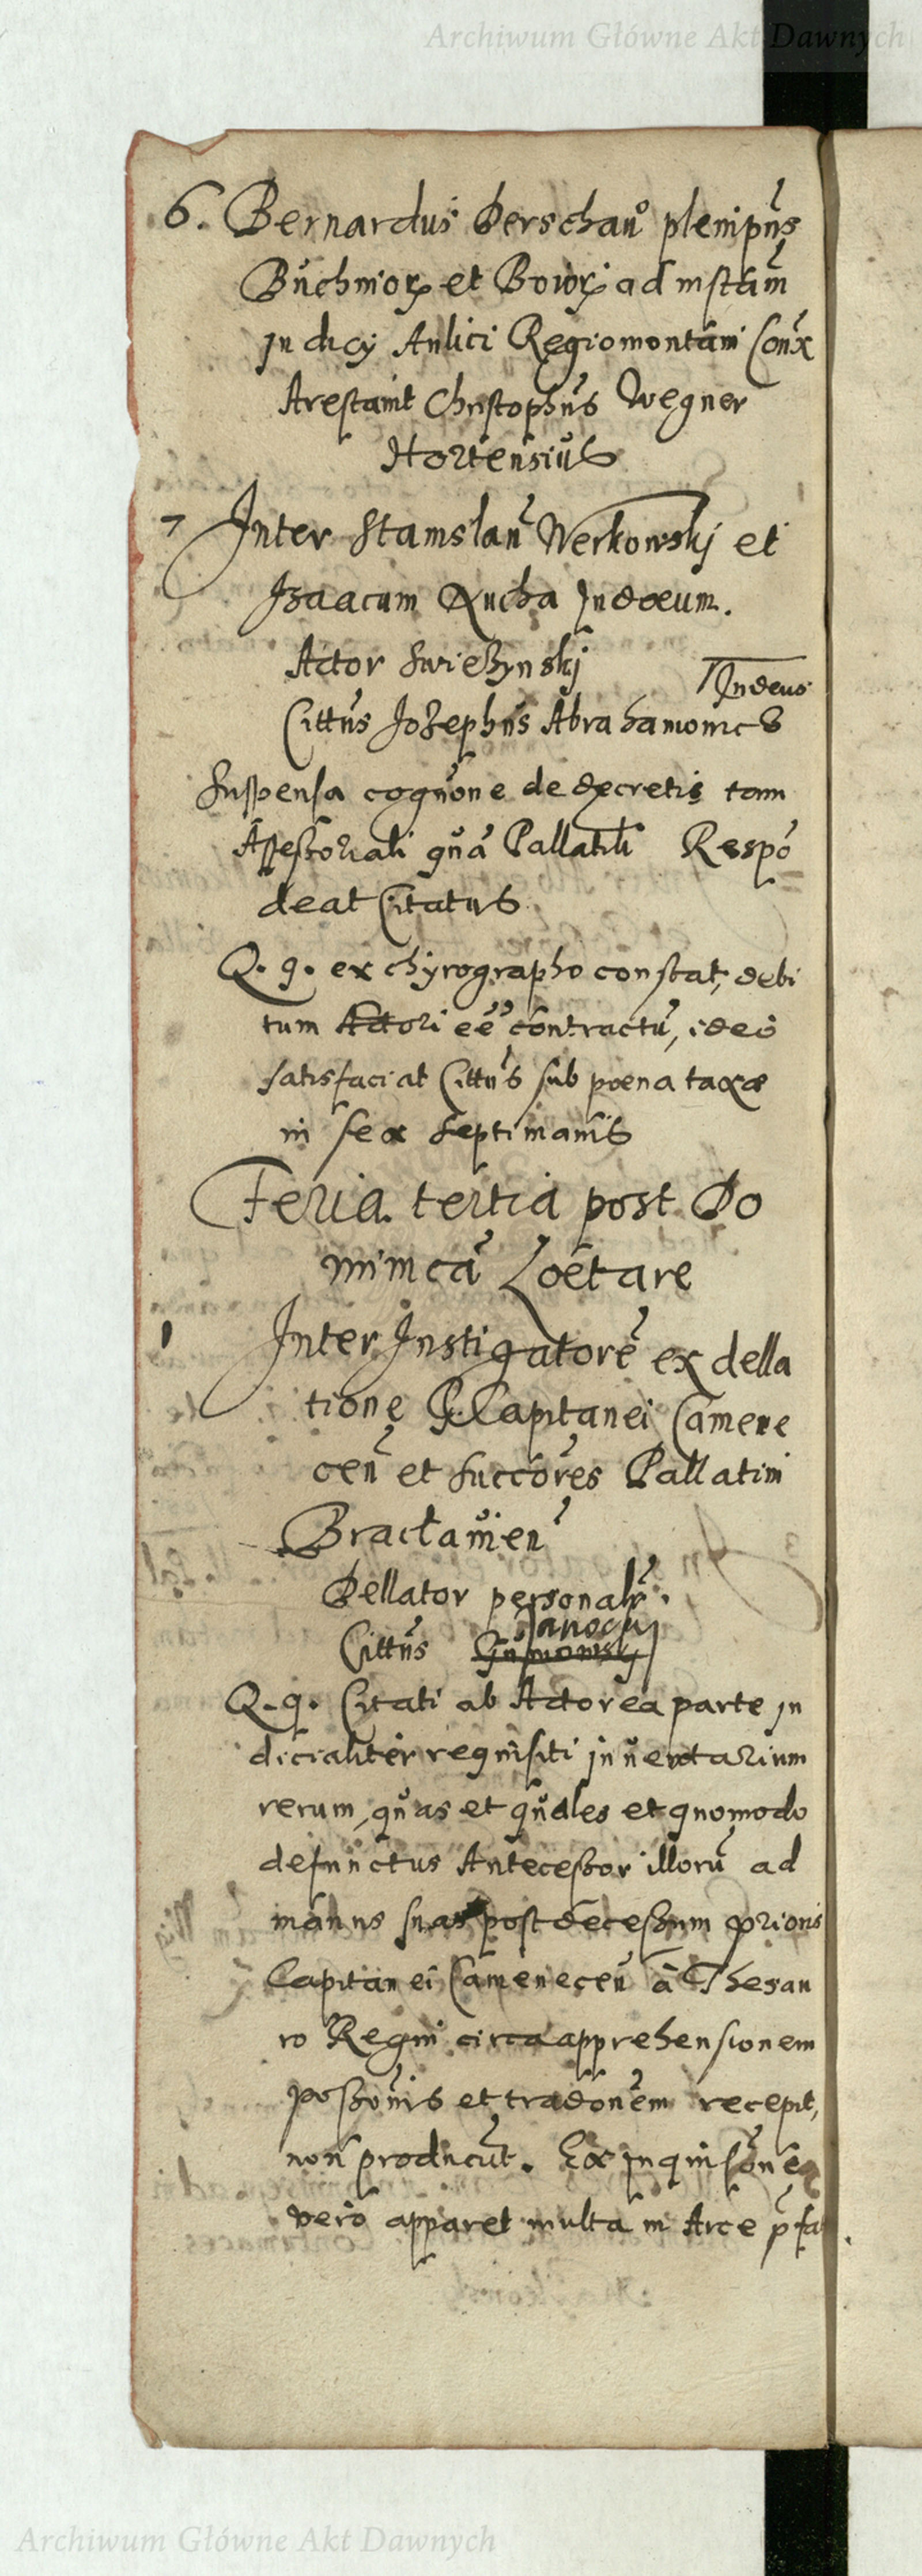 Archiwum Główne Akt Dawnych
6. Bernardus Derschau plenipūs
Buchnior et Bowr ad instām
Judicij Aulici Regiomontani Conx
Arestavit Christophus Wegner
Hortensius
7 Inter Stanislaū Werkowskj et
Isaacum Xucha Judæum.
Actor Swieżynskj
Judeus
Cittūs Josephus Abrahamowicz
Suspensa cognōne de decretis tam
Assessoriali quā Pallatīli Respō
deat Citatus
Q. q. ex chyrographo constat, debi
tum Actori eē contractū, ideo
satisfaciat Cittūs sub poena taxæ
in sex septimanis
Feria tertia post Do
minicā Lœtare
1 Inter Instigatorē ex della
tione G. Capitanei Camene
ceñ et Succōres Pallatini
Braclavieñ
Dellator personalr.
Janocky
Cittūs
Q. q. Citati ab Actorea parte ju
dicialiter requisiti inventarium
rerum, quas et quales et quomodo
defunctus Antecessor illorū ad
manus suas post decessum prioris
Capitanei Cameneceñ à Thesau
ro Regni circa apprehensionem
possōnis et tradōnem recepit,
non producūt. Ex inquisōne
vero apparet multa in Arce p̄fa
Archiwum Główne Akt Dawnych